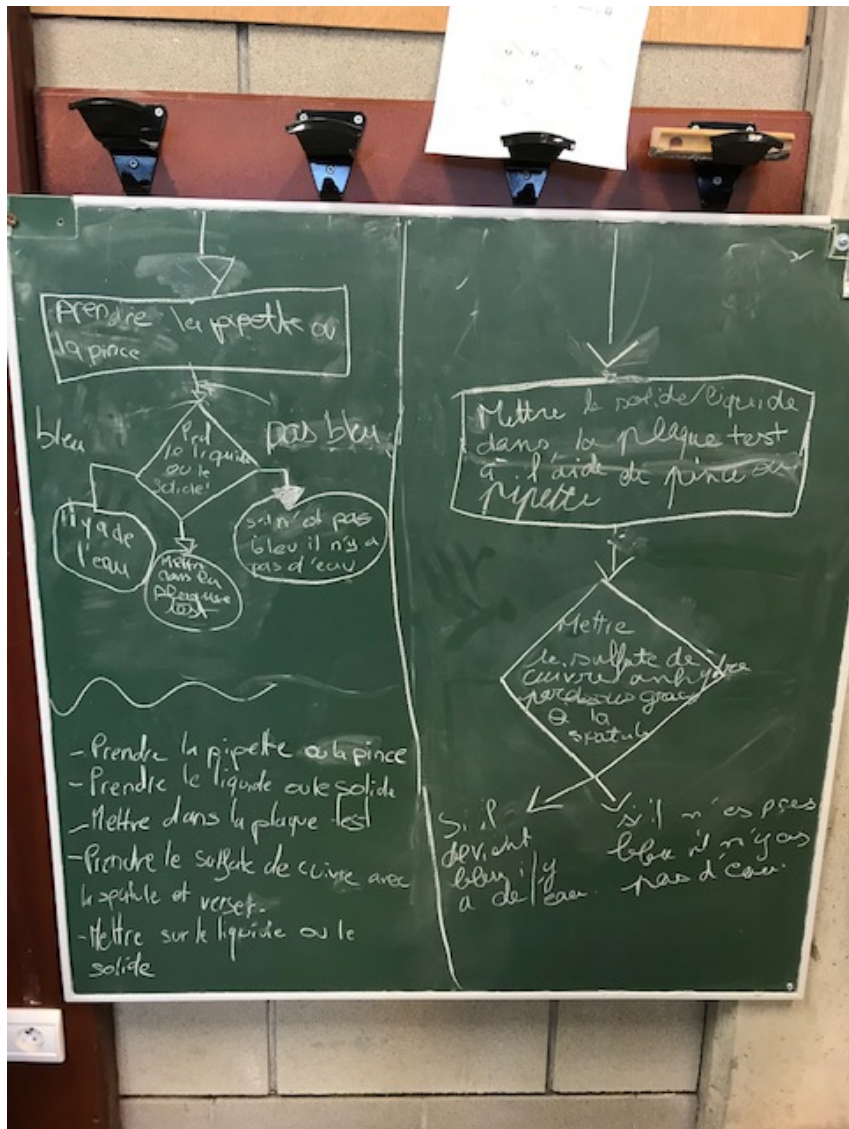 prendre la pipette ou
la pince
bleu
pas bleu
Prd
le liquide
ou le
solide
il y a de
l'eau
Mettre
dans la
plaque
test
si il n'est pas
bleu il n'y a
pas d'eau
- Prendre la pipette ou la pince
- Prendre le liquide ou le solide
- Mettre dans la plaque test
- Prendre le sulfate de cuivre avec
la spatule et verser.
- Mettre sur le liquide ou le
solide
Mettre le solide/liquide
dans la plaque test
à l'aide de pince ou
pipette
Mettre
le sulfate de
cuivre anhydre
par dessus grace
a la
spatule
Si il
devient
bleu il y
a de l'eau.
si il n'es pas
bleu il n'y as
pas d'eau.